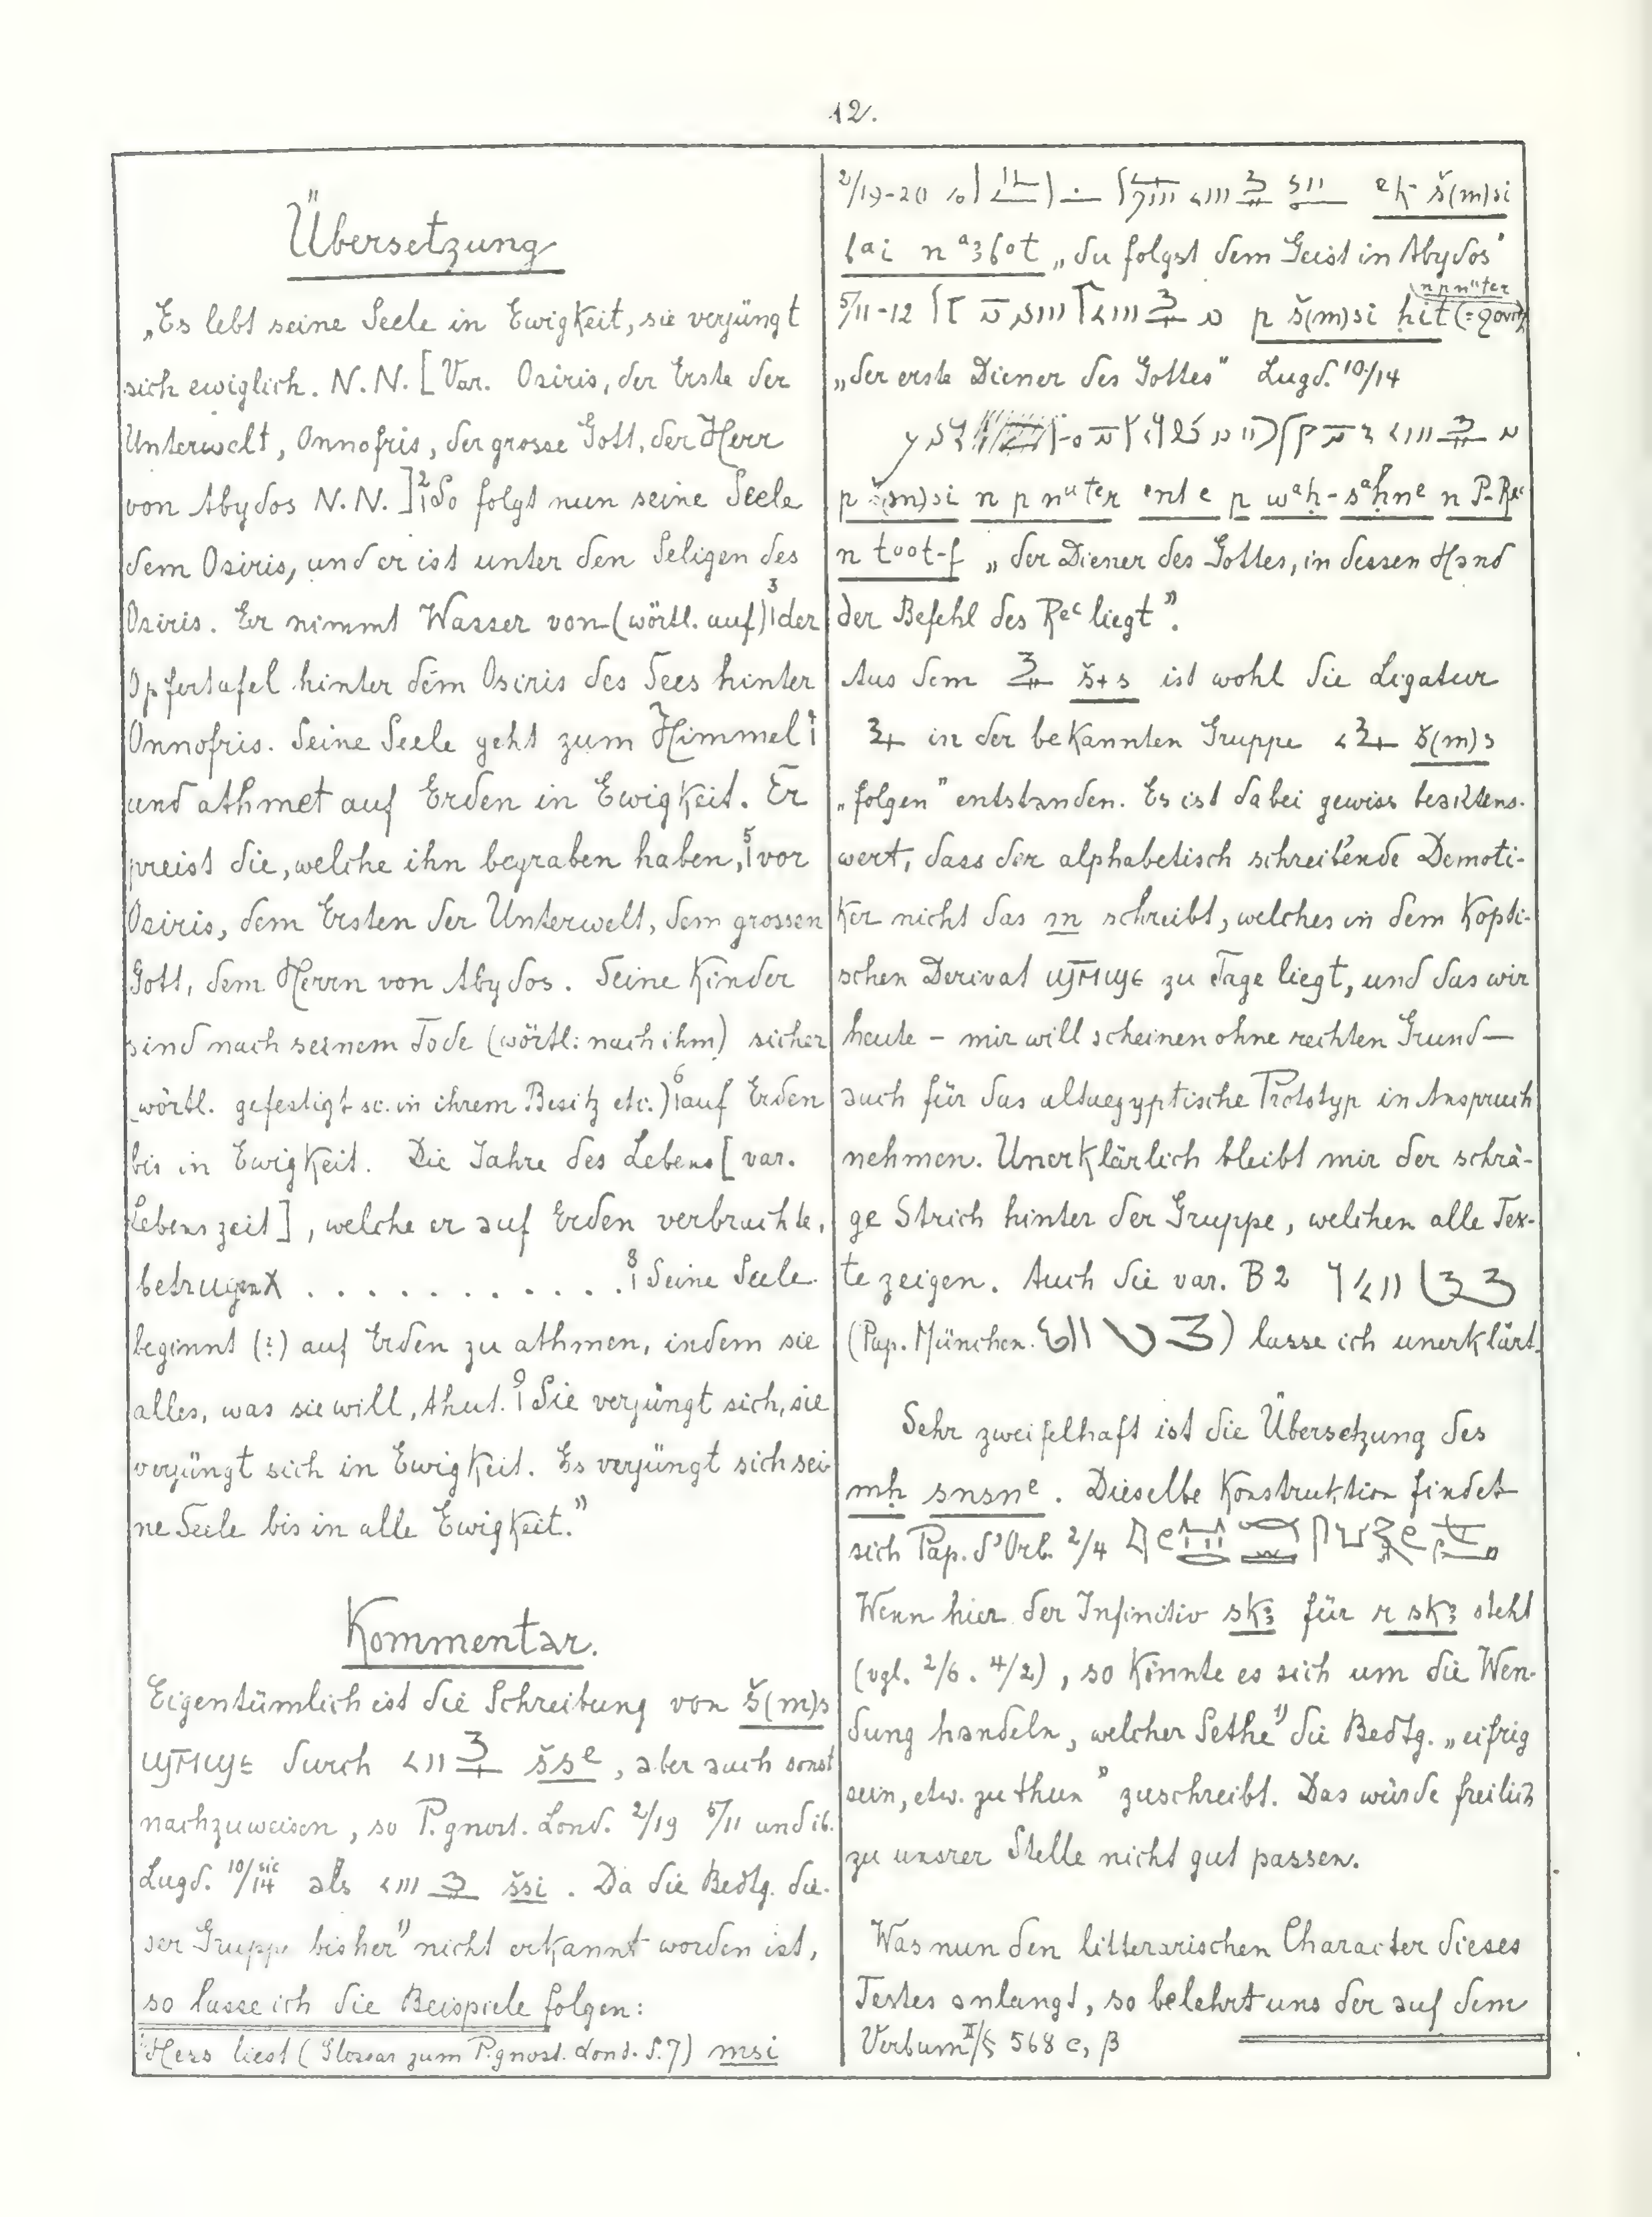 12.
Übersetzung
„Es lebt seine Seele in Ewigkeit, sie verjüngt
sich ewiglich. N.N. [Var. Osiris, der Erste der
Unterwelt, Onnofris, der grosse Gott, der Herr
von Abydos N.N.]|² So folgt nun seine Seele
dem Osiris, und er ist unter den Seligen des
Osiris. Er nimmt Wasser von (wörtl. auf)|³ der
Opfertafel hinter dem Osiris des Sees hinter
Onnofris. Seine Seele geht zum Himmel|⁴
und athmet auf Erden in Ewigkeit. Er
preist die, welche ihn begraben haben,|⁵ vor
Osiris, dem Ersten der Unterwelt, dem grossen
Gott, dem Herrn von Abydos. Seine Kinder
sind nach seinem Tode (wörtl: nach ihm) sicher
(wörtl. gefestigt sc. in ihrem Besitz etc.)|⁶ auf Erden
bis in Ewigkeit. Die Jahre des Lebens [var.
Lebenszeit], welche er auf Erden verbrachte,
betrugen . . . . . . . . . . . . .|⁸ Seine Seele
beginnt (?) auf Erden zu athmen, indem sie
alles, was sie will, thut.|⁹ Sie verjüngt sich, sie
verjüngt sich in Ewigkeit. Es verjüngt sich sei-
ne Seele bis in alle Ewigkeit.”
Kommentar.
Eigentümlich ist die Schreibung von š(m)s
ϣⲙϣⲉ durch šsᵉ, aber auch sonst
nachzuweisen, so P. gnost. Lond. 2/19 5/11 und ib.
Lugd. 10/14 sic als šsi. Da die Bedtg. die-
ser Gruppe bisher¹⁾ nicht erkannt worden ist,
so lasse ich die Beispiele folgen:
¹⁾ Hess liest (Glossar zum P. gnost. Lond. S. 7) msi
2/19-20 eḳ š(m)si
bai n ᵃ3bᵒt „du folgst dem Geist in Abydos”
5/11-12 p š(m)si ḥit n p nᵘter
„der erste Diener des Gottes” Lugd. 10/14
p š(m)si n p nᵘter ent e p wᵃḥ-sᵃḥnᵉ n P-Reᶜ
n toot-f „der Diener des Gottes, in dessen Hand
der Befehl des Reᶜ liegt”.
Aus dem š+s ist wohl die Ligatur
in der bekannten Gruppe š(m)s
„folgen” entstanden. Es ist dabei gewiss beachtens-
wert, dass der alphabetisch schreibende Demoti-
ker nicht das m schreibt, welches in dem Kopti-
schen Derivat ϣⲙϣⲉ zu Tage liegt, und das wir
heute – mir will scheinen ohne rechten Grund –
auch für das altaegyptische Prototyp in Anspruch
nehmen. Unerklärlich bleibt mir der schrä-
ge Strich hinter der Gruppe, welchen alle Tex-
te zeigen. Auch die var. B 2
(Pap. München. ) lasse ich unerklärt.
Sehr zweifelhaft ist die Übersetzung des
mḥ snsnᵉ. Dieselbe Konstruktion findet
sich Pap. d'Orb. 2/4
Wenn hier der Infinitiv sk3 für r sk3 steht
(vgl. 2/6. 4/2), so könnte es sich um die Wen-
dung handeln, welcher Sethe¹⁾ die Bedtg. „eifrig
sein, etw. zu thun” zuschreibt. Das würde freilich
zu unsrer Stelle nicht gut passen.
Was nun den litterarischen Character dieses
Textes anlangt, so belehrt uns der auf dem
Verbum II/§ 568 c, β